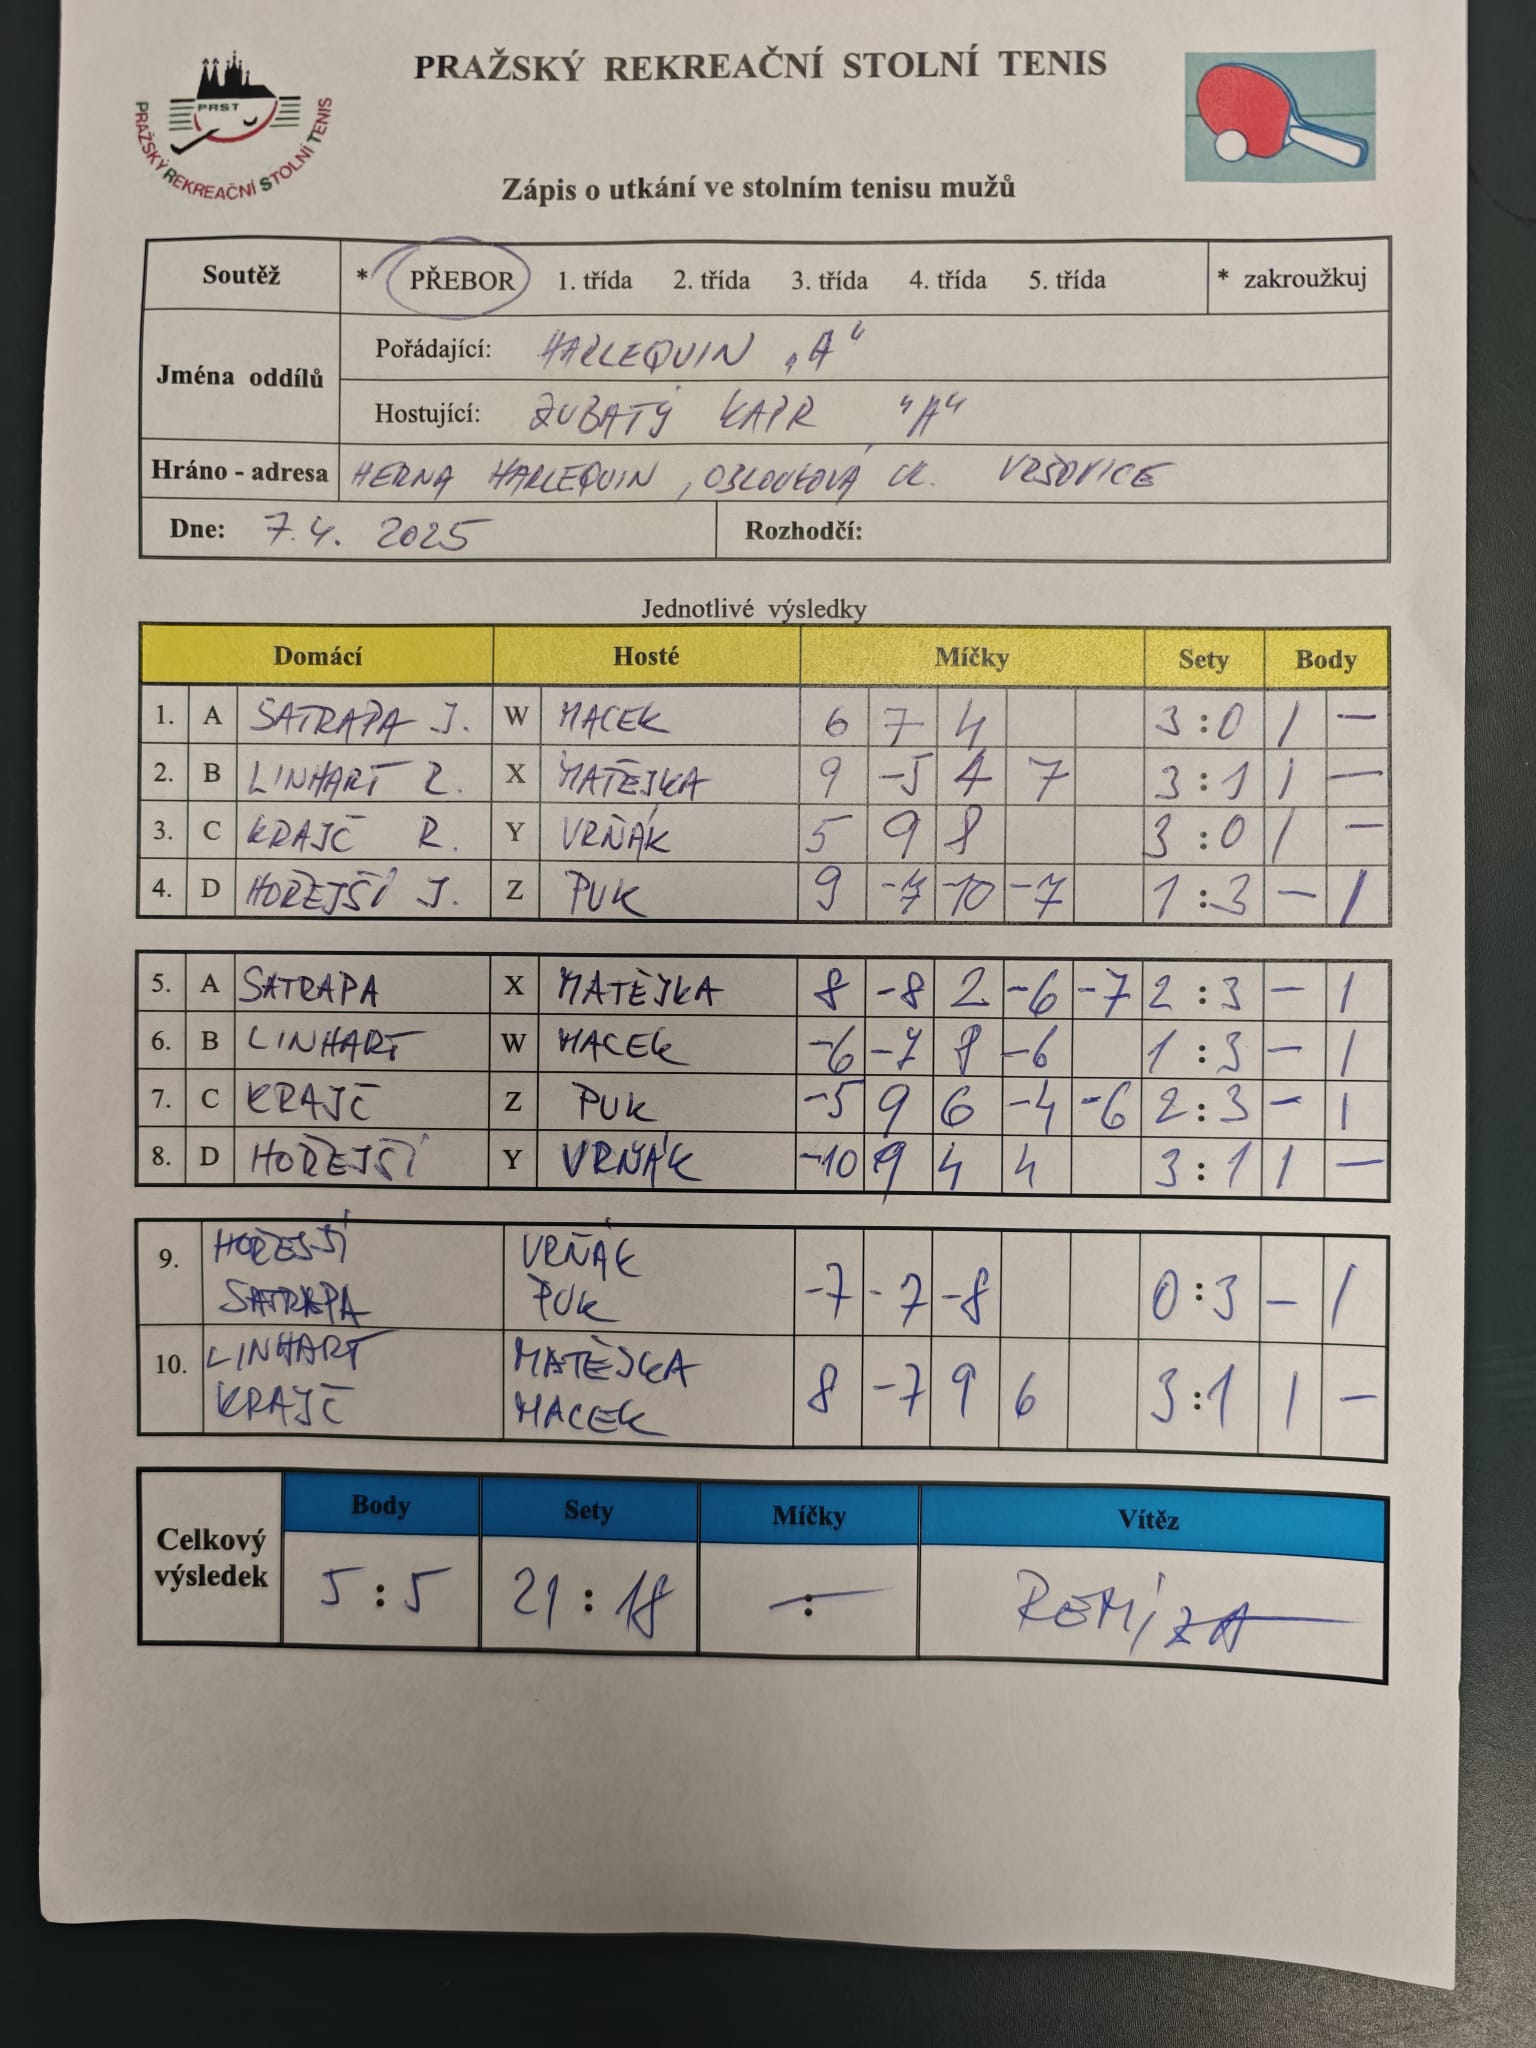 PRAŽSKÝ REKREAČNÍ STOLNÍ TENIS
PRST
PRAŽSKÝ REKREAČNÍ STOLNÍ TENIS
Zápis o utkání ve stolním tenisu mužů
Soutěž * PŘEBOR 1. třída 2. třída 3. třída 4. třída 5. třída * zakroužkuj
Jména oddílů
Pořádající: HARLEQUIN „A“
Hostující: ZUBATÝ KAPR "A"
Hráno - adresa HERNA HARLEQUIN, OBLOUKOVÁ UL. VRŠOVICE
Dne: 7.4. 2025 Rozhodčí:
Jednotlivé výsledky
Domácí Hosté Míčky Sety Body
1. A SATRAPA J. W MACEK 6 7 4 3 : 0 1 —
2. B LINHART Z. X MATĚJKA 9 -5 4 7 3 : 1 1 —
3. C KRAJČ R. Y VRŇÁK 5 9 8 3 : 0 1 —
4. D HOŘEJŠÍ J. Z PUK 9 -7 -10 -7 1 : 3 — 1
5. A SATRAPA X MATĚJKA 8 -8 2 -6 -7 2 : 3 — 1
6. B LINHART W MACEK -6 -7 8 -6 1 : 3 — 1
7. C KRAJČ Z PUK -5 9 6 -4 -6 2 : 3 — 1
8. D HOŘEJŠÍ Y VRŇÁK -10 9 4 4 3 : 1 1 —
9. HOŘEJŠÍ VRŇÁK
SATRAPA PUK -7 -7 -8 0 : 3 — 1
10. LINHART MATĚJKA
KRAJČ MACEK 8 -7 9 6 3 : 1 1 —
Celkový výsledek
Body Sety Míčky Vítěz
5 : 5 21 : 18 — : REMÍZA